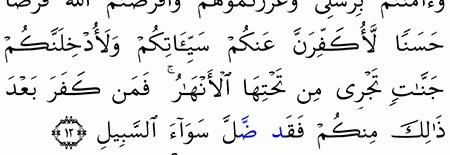 وَءَامَنتُم بِرُسُلِى وَعَزَّرْتُمُوهُمْ وَأَقْرَضْتُمُ ٱللَّهَ قَرْضًا
حَسَنًا لَّأُكَفِّرَنَّ عَنكُمْ سَيِّـَٔاتِكُمْ وَلَأُدْخِلَنَّكُمْ
جَنَّـٰتٍ تَجْرِى مِن تَحْتِهَا ٱلْأَنْهَـٰرُ ۚ فَمَن كَفَرَ بَعْدَ
ذَٰلِكَ مِنكُمْ فَقَد ضَّلَّ سَوَآءَ ٱلسَّبِيلِ ﴿١٢﴾